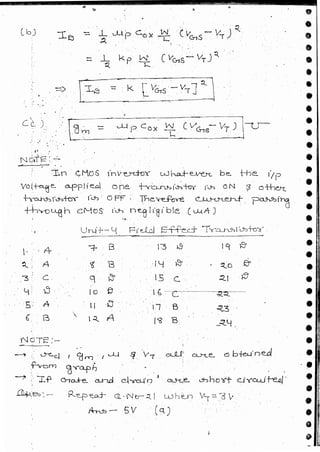 (b) I_D = 1/2 μp Cox W/L (V_GS - V_T)²
= 1/2 kp W/L (V_GS - V_T)²
⇒ I_D = k [V_GS - V_T]²
(c) g_m = μp Cox W/L (V_GS - V_T) ℧
NOTE:-
In CMOS invertor whatever be the i/p
voltage applied one transistor is ON & other
transistor is OFF. Therefore current passing
through CMOS is negligible (μA)
Unit-4 Field Effect Transistor
1. A 7 B 13 19
2. A 8 B 14 20
3 C 9 15 C 21
4 10 16 C 22
5 A 11 17 B 23
6 B 12 A 18 B 24
NOTE:-
→ , g_m , μ & V_T all are obtained
from graph
→ If Gate and drain are short circuited
Repeat Q.No-21 when V_T = 3V
Ans - 5V (a)